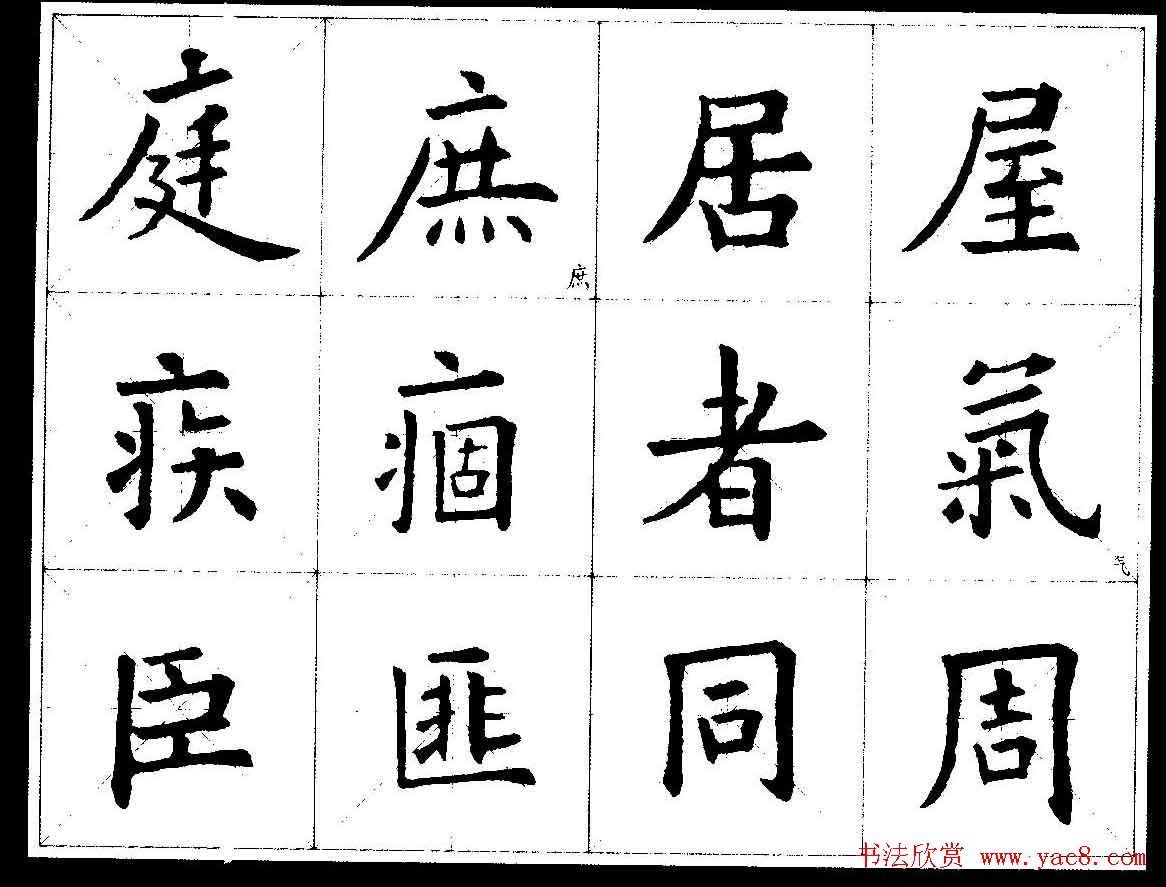 庭庶居屋
庶
疾痼者氣
气
臣匪同周
书法欣赏 www.yac8.com